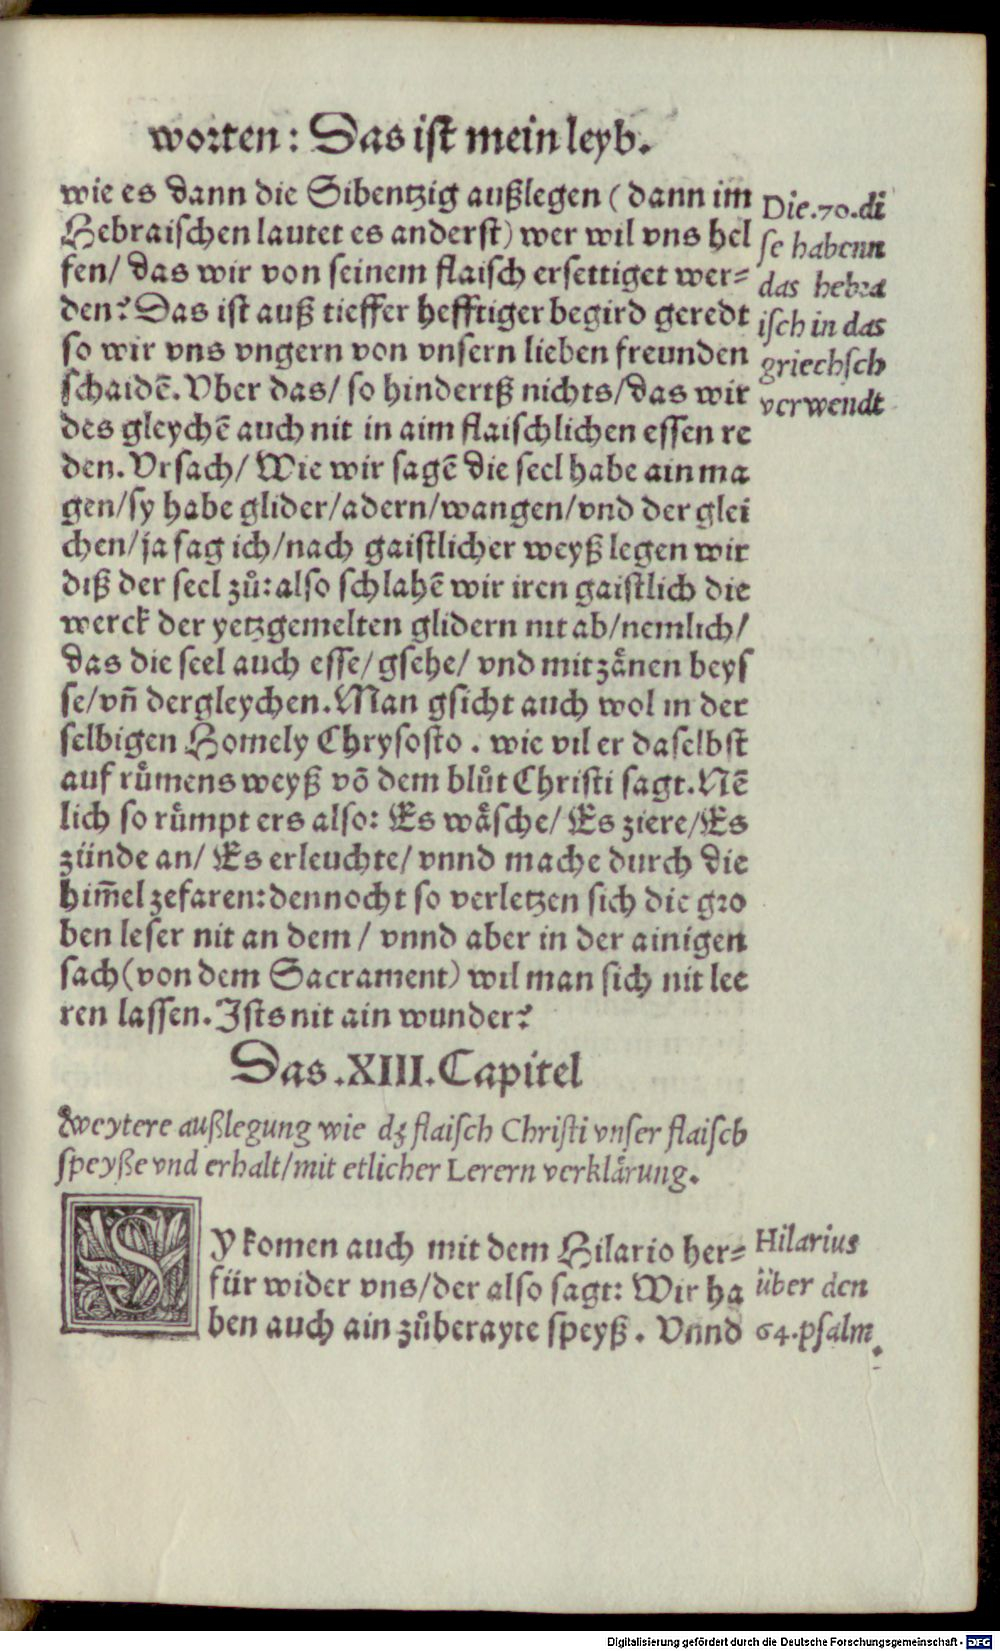 worten: Das ist mein leyb.
wie es dann die Sibentzig außlegen (dann im
Hebraischen lautet es anderst) wer wil vns hel
fen/ das wir von seinem flaisch ersettiget wer=
den? Das ist auß tieffer hefftiger begird geredt
so wir vns vngern von vnsern lieben freunden
schaidē. Vber das/ so hindertß nichts/das wir
des gleychē auch nit in aim flaischlichen essen re
den. Vrsach/ Wie wir sagē die seel habe ain ma
gen/sy habe glider/adern/wangen/vnd der glei
chen/ja sag ich/nach gaistlicher weyß legen wir
diß der seel zuͦ: also schlahē wir iren gaistlich die
werck der yetzgemelten glidern nit ab/nemlich/
das die seel auch esse/gsehe/ vnd mit zaͤnen beys
se/vn̄ dergleychen. Man gsicht auch wol in der
selbigen Homely Chrysosto. wie vil er daselbst
auf ruͤmens weyß vō dem bluͦt Christi sagt. Nē
lich so ruͤmpt ers also: Es waͤsche/ Es ziere/Es
zünde an/ Es erleuchte/ vnnd mache durch die
him̄el zefaren: dennocht so verletzen sich die gro
ben leser nit an dem/ vnnd aber in der ainigen
sach (von dem Sacrament) wil man sich nit lee
ren lassen. Ists nit ain wunder?
Die.70.di
se habenn
das hebra
isch in das
griechsch
verwendt
Das .XIII. Capitel
weytere außlegung wie dz flaisch Christi vnser flaisch
speyße vnd erhalt/mit etlicher Lerern verklaͤrung.
Sy komen auch mit dem Hilario her=
für wider vns/der also sagt: Wir ha
ben auch ain zuͦberayte speyß. Vnnd
Hilarius
über den
64.psalm.
Digitalisierung gefördert durch die Deutsche Forschungsgemeinschaft - DFG